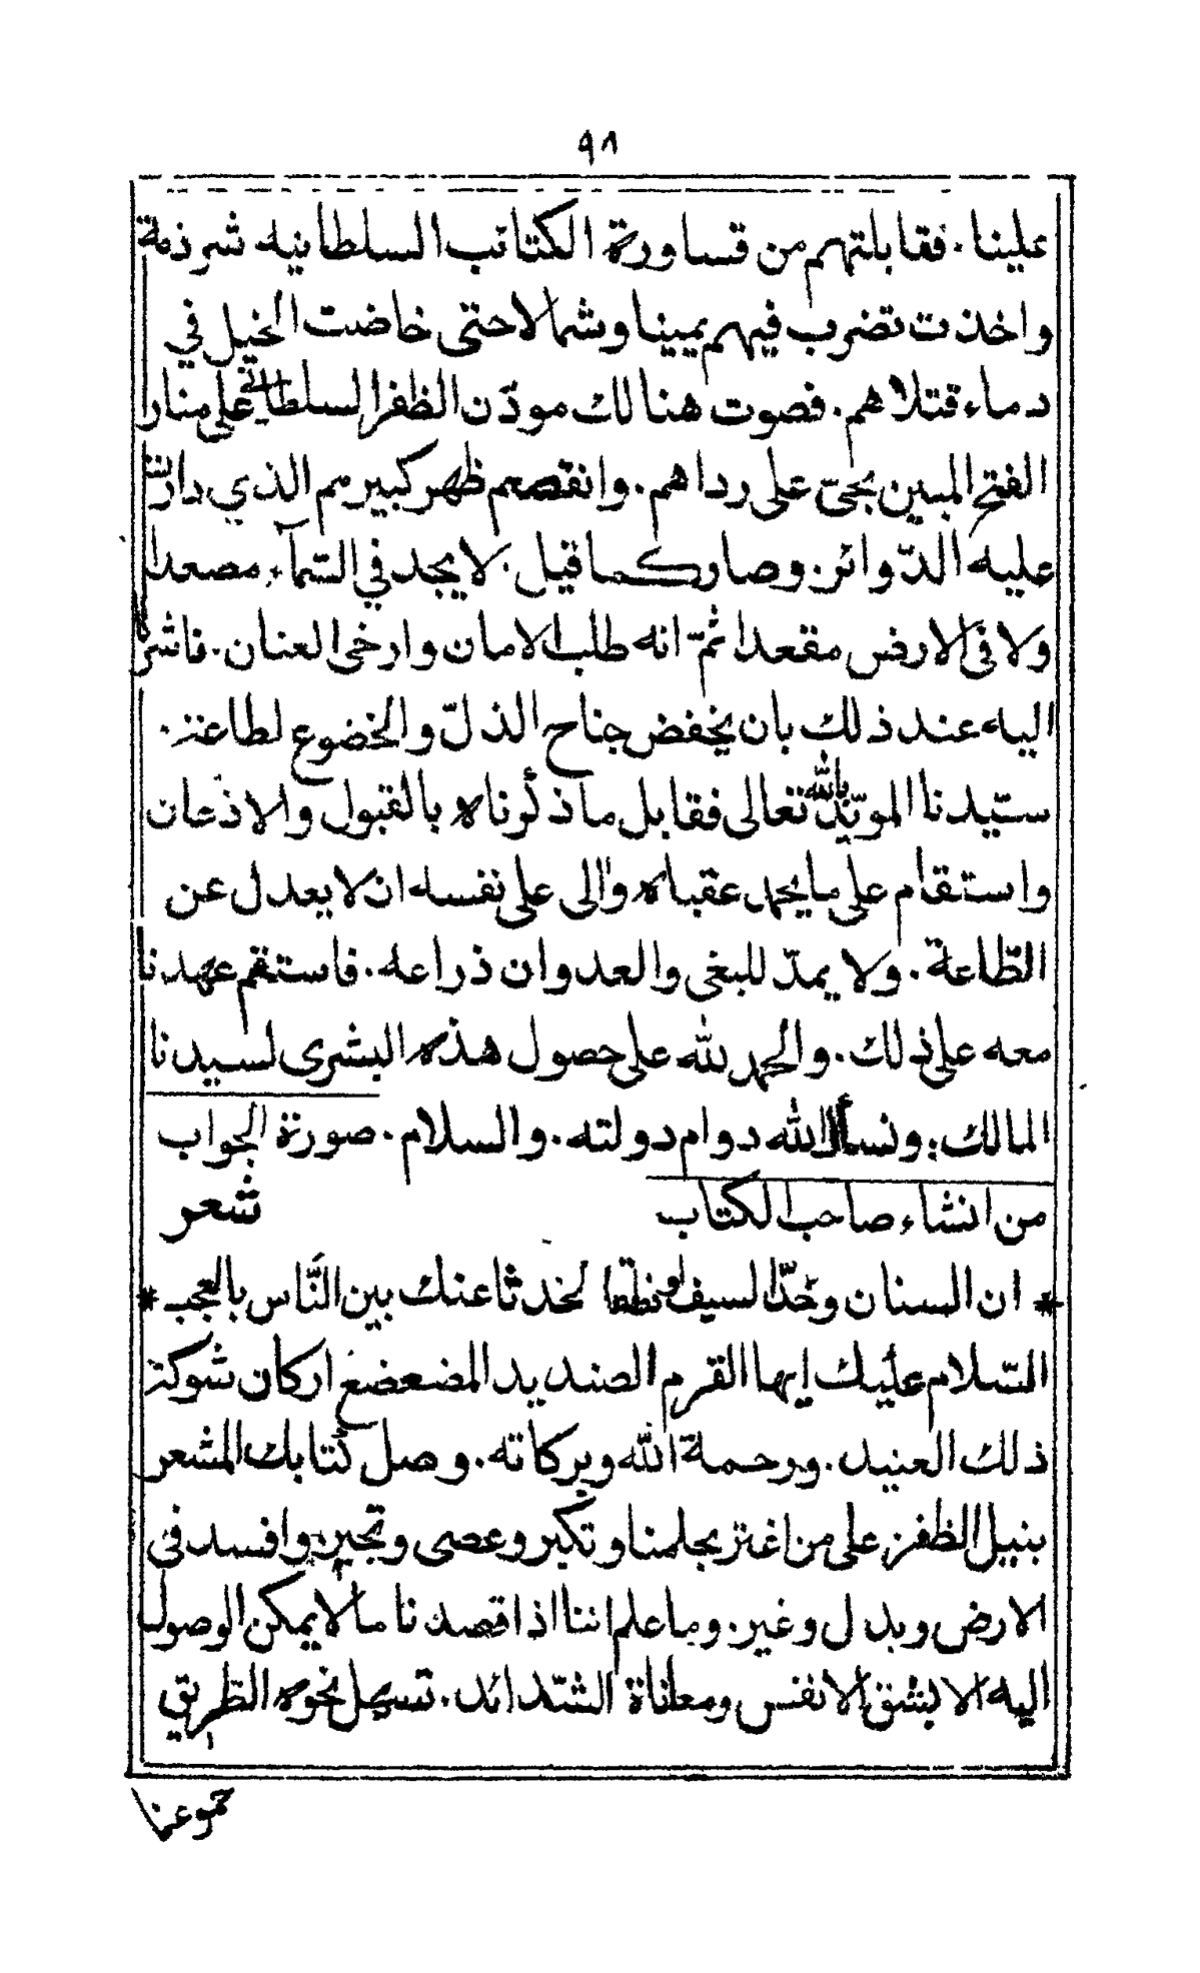 ٩٨
علينا. فقابلتهم من قساورة الكتائب السلطانيه شرذمة
واخذت تضرب فيهم يمينا وشمالا حتى خاضت الخيل في
دماء قتلاهم. فصوت هنالك موذّن الظفر السلطاني على منار
الفتح المبين بحيّ على رداهم. وانقصم ظهر كبيرهم الذي دارت
عليه الدّوائر. وصار كما قيل. لا يجد في السّمآء مصعدا
ولا فى الارض مقعدا ثمّ انه طلب الامان وارخى العنان. فاشرنا
اليه عند ذلك بان يخفض جناح الذلّ والخضوع لطاعة.
سيّدنا المويّد بالله تعالى فقابل ما ذكرناه بالقبول والاذعان
واستقام على ما يحمد عقباه وآلى على نفسه ان لا يعدل عن
الطّاعة. ولا يمدّ للبغى والعدوان ذراعه. فاستقم عهدنا
معه على ذلك. والحمد لله على حصول هذه البشرى لسيدنا
المالك: ونسأل الله دوام دولته. والسلام. صورة الجواب
من انشاء صاحب الكتاب شعر
* ان السنان وحَدّ السيف لو نطقا لحدثا عنك بين النَّاس بالعجب *
السّلام عليك ايها القرم الصنديد المضعضع اركان شوكة
ذلك العنيد. ورحمة الله وبركاته. وصل كتابك المشعر
بنيل الظفر على من اغتر بحلمنا وتكبر وعصى وتجبر. وافسد فى
الارض وبدل وغير. وما علم اننا اذا قصدنا ما لا يمكن الوصول
اليه الا بشق الانفس ومعاناة الشّدائد. تسهل نحوه الطّريق